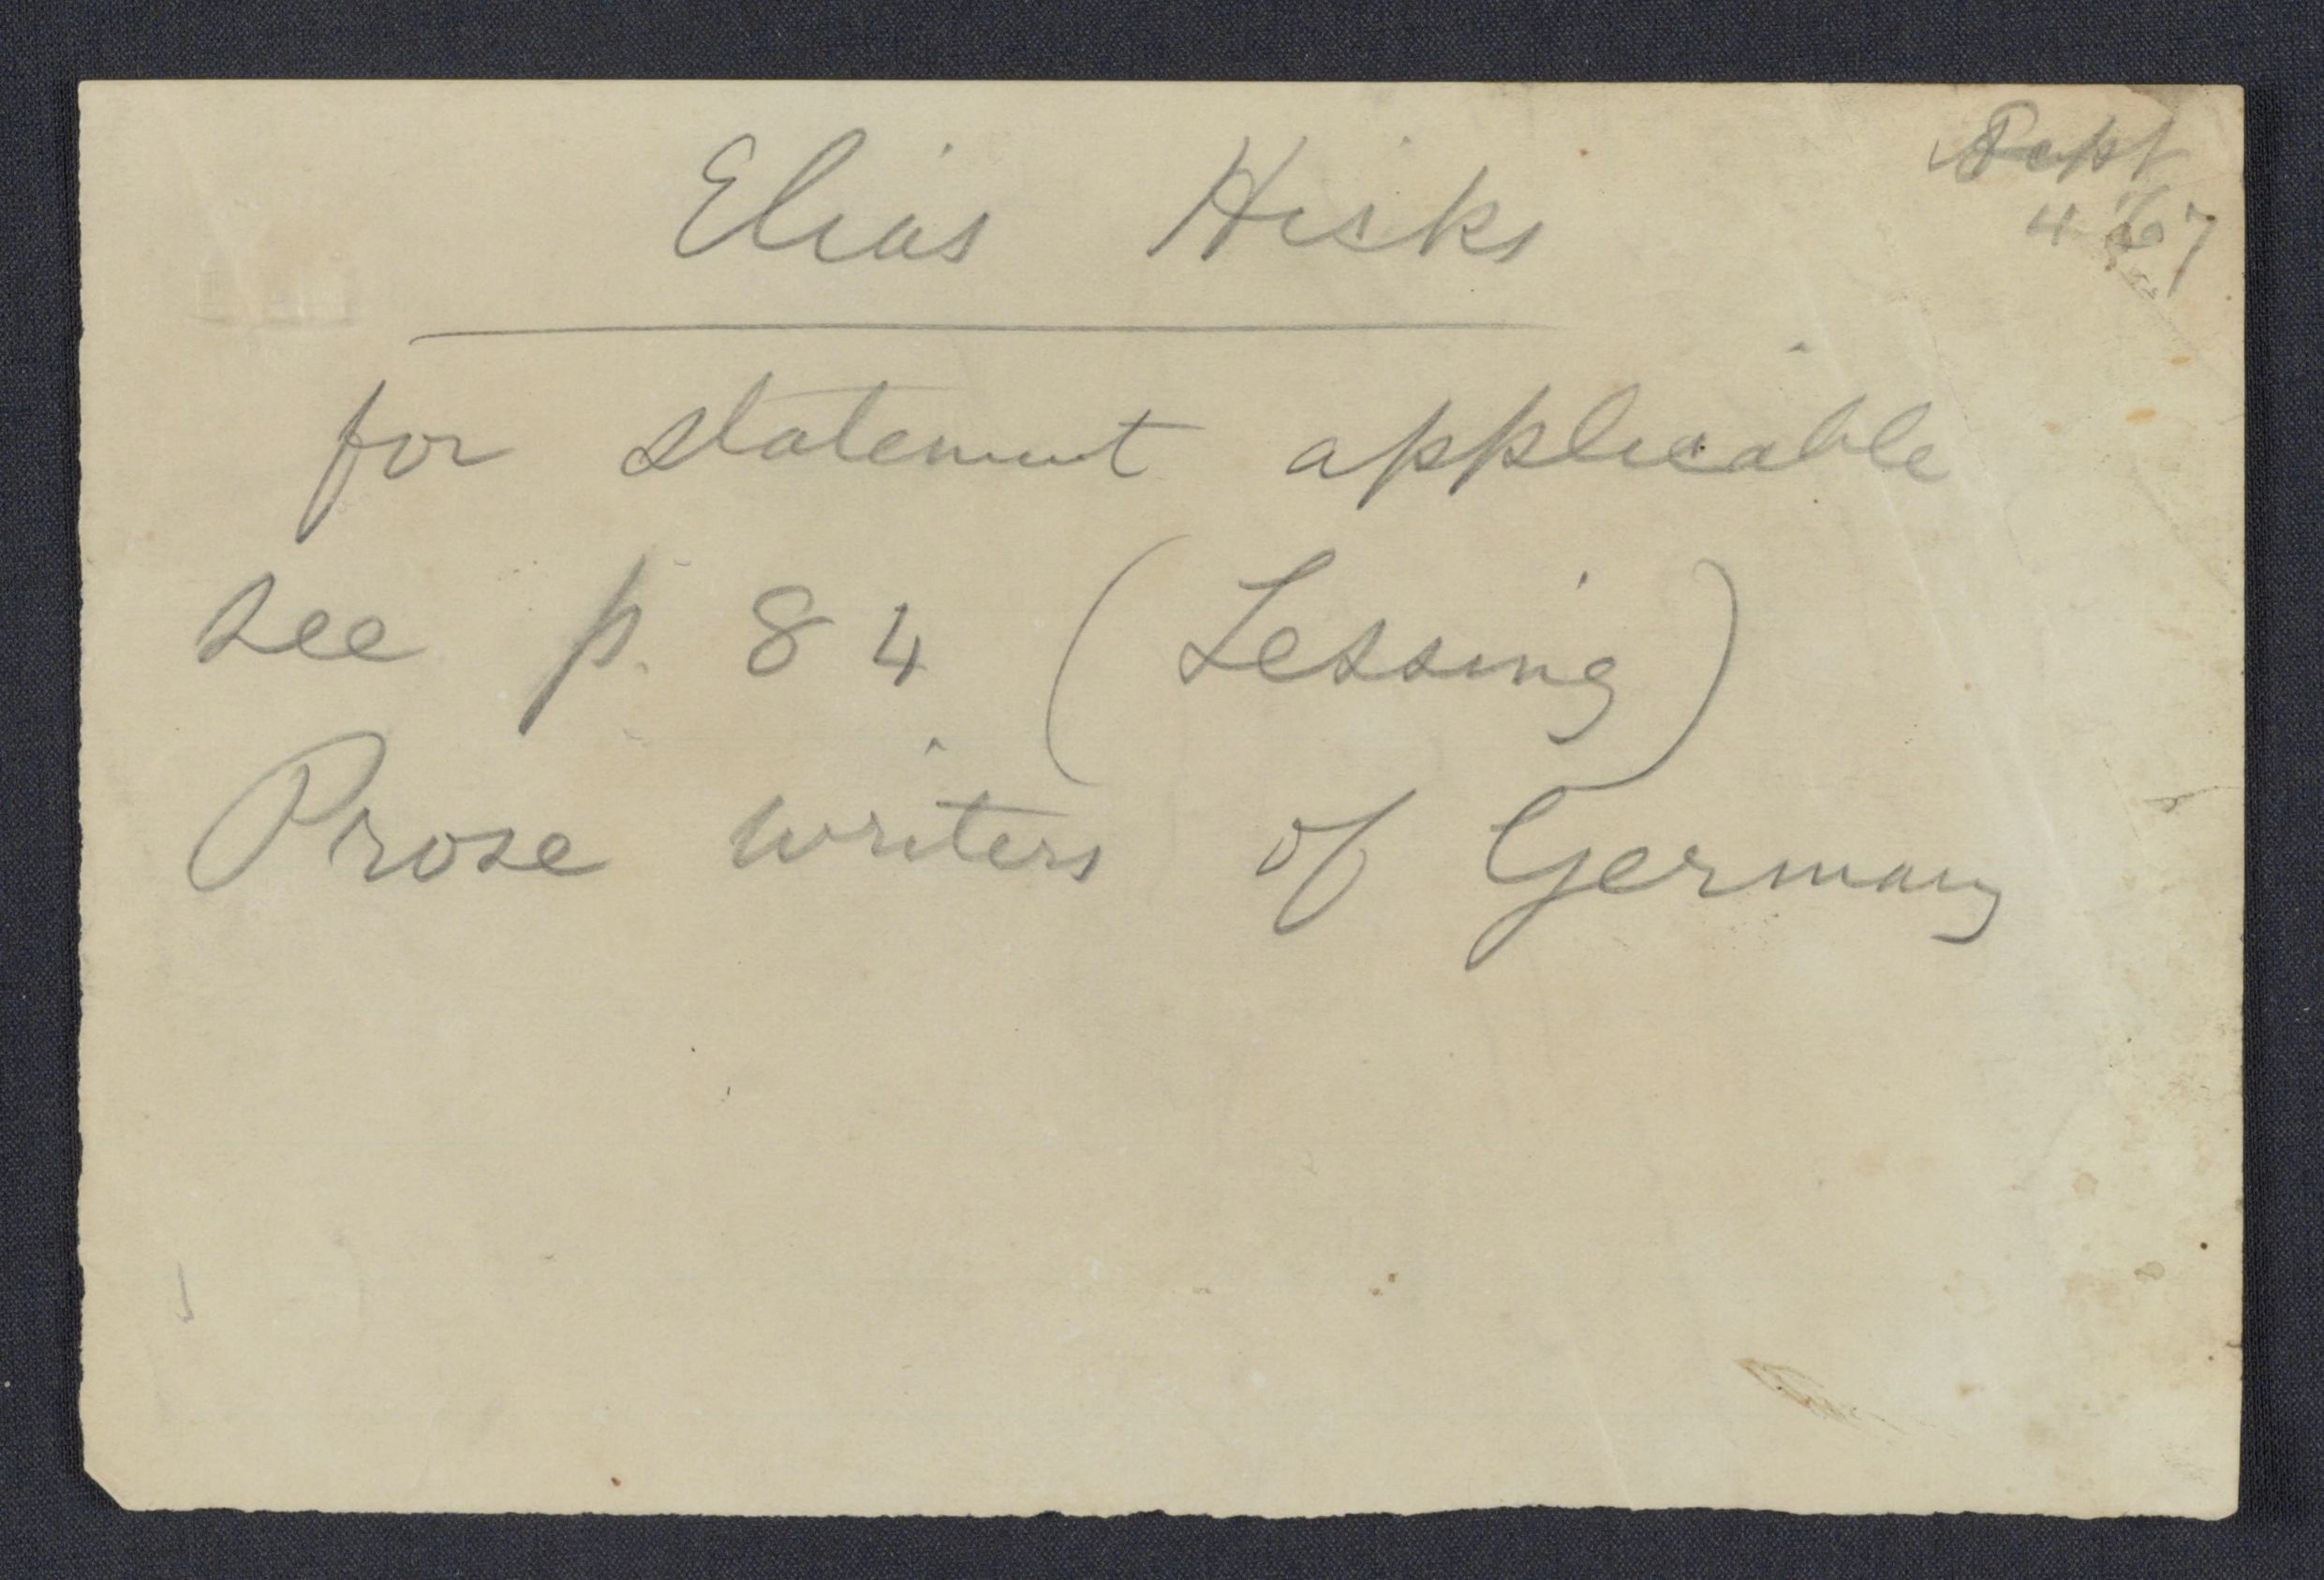 Sept
4 '67
Elias Hicks
for statement applicable
see p. 84 (Lessing)
Prose writers of Germany